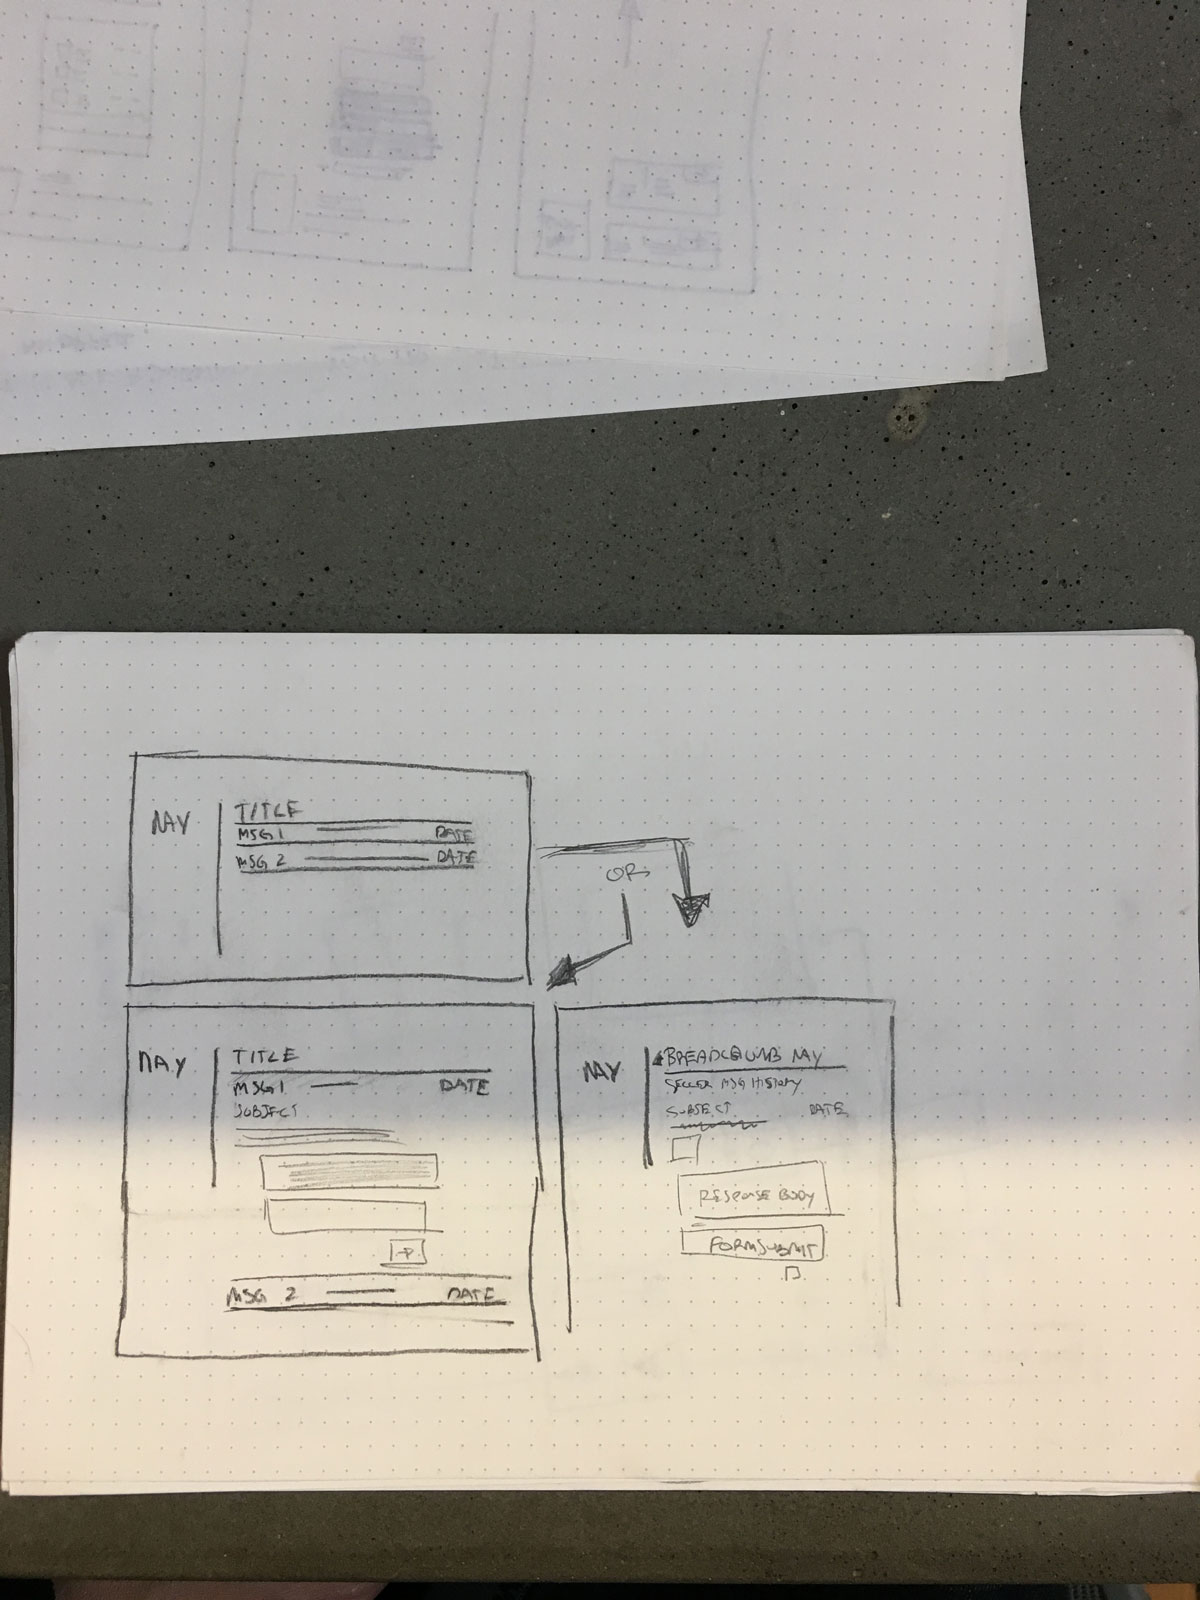 NAV
TITLE
MSG 1 DATE
MSG 2 DATE
OR
NAV
TITLE
MSG 1 DATE
SUBJECT
MSG 2 DATE
NAV
BREADCRUMB NAV
SELLER MSG HISTORY
SUBJECT DATE
RESPONSE BODY
FORM SUBMIT